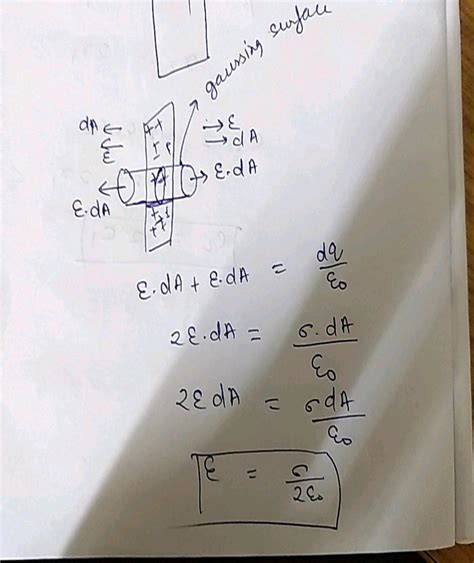 gaussing surface
dA ← → ε
ε ← → dA
ε.dA ε.dA
++
++
++
++
ε.dA + ε.dA = dq/ε₀
2ε.dA = σ.dA/ε₀
2εdA = σdA/ε₀
ε = σ/2ε₀